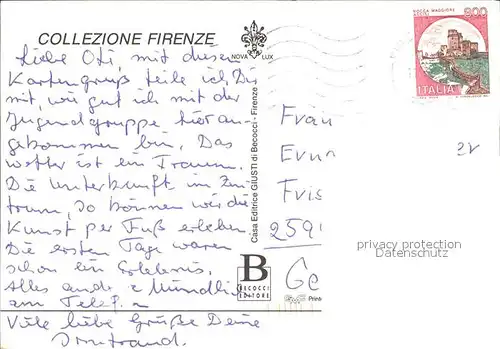 COLLEZIONE FIRENZE
NOVA LUX
Liebe Oti, mit diesem
Kartengruß teile ich Dir
mit, wie gut ich mit der
Jugendgruppe hier an-
gekommen bin. Das
Wetter ist ein Traum.
Die Unterkunft im Zen-
trum, so können wir die
Kunst per Fuß erleben.
Die ersten Tage waren
schon ein Erlebnis.
Alles andere mündlich
am Telefon
Viele liebe Grüße Deine
Casa Editrice GIUSTI di Becocci - Firenze
B
BECOCCI
EDITORE
ROCCA MAGGIORE
800
ITALIA
Frau
Erna
Fris
2591
Ge
privacy protection
Datenschutz